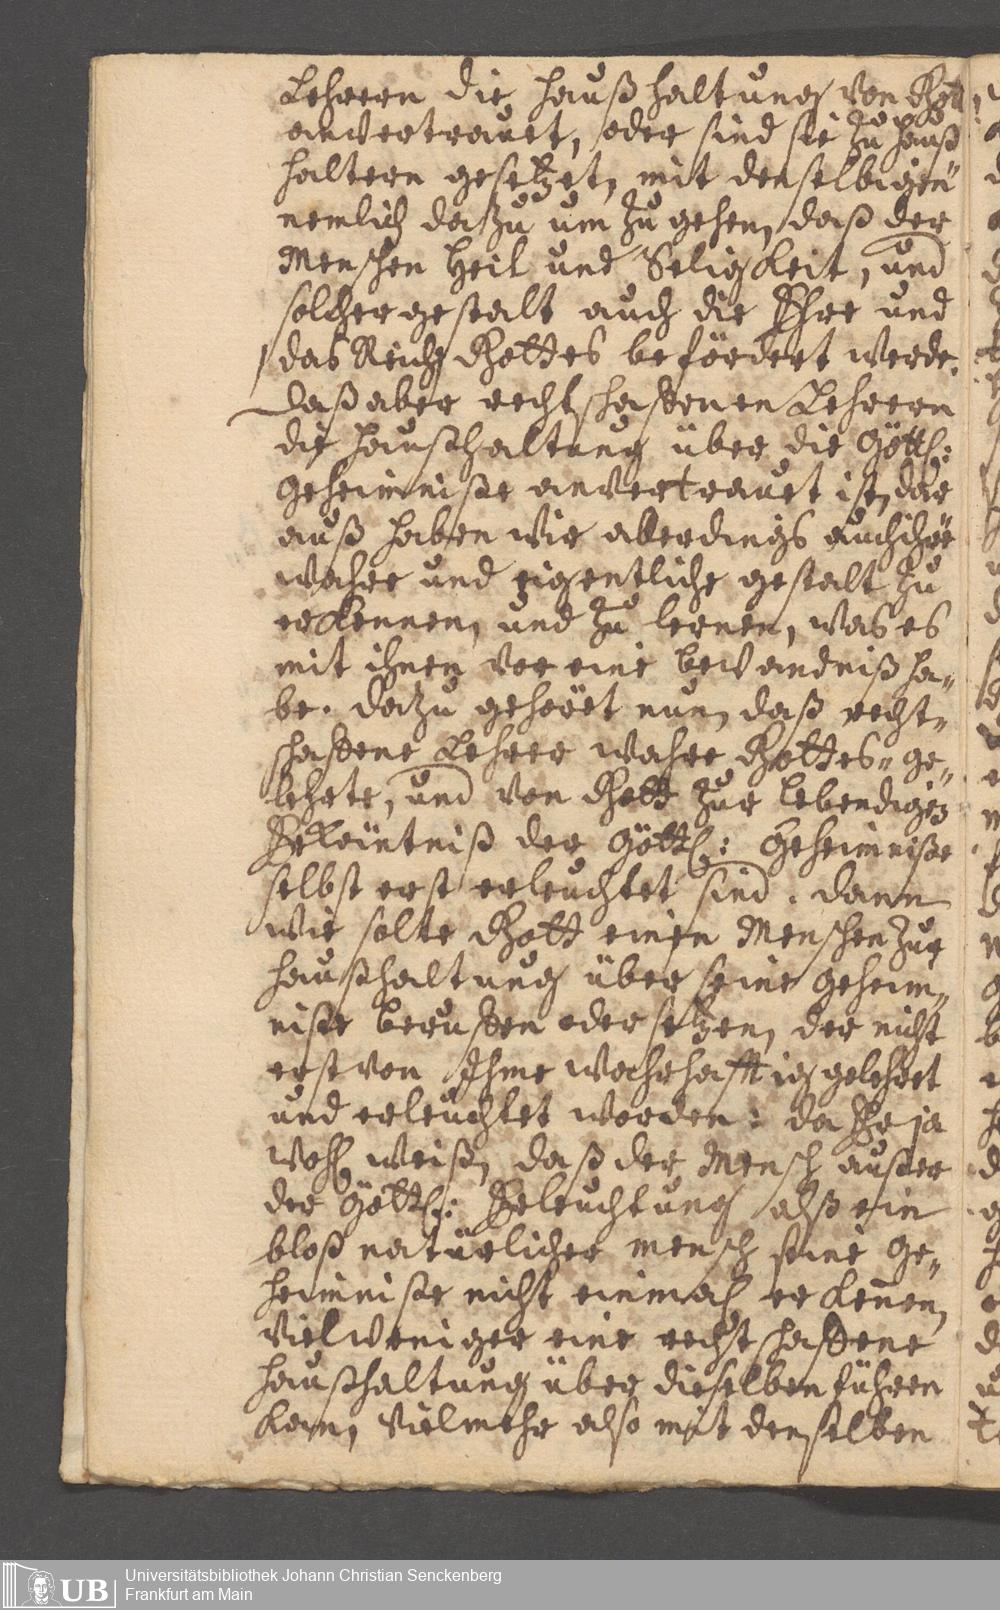 Lehrern die Haußhaltung von Gott
anvertrauet, oder sind sie zu Hauß
haltern gesetzet, mit denselbigen
nemlich dazu um zu gehen, daß der
Menschen Heil und Seligkeit, und
solcher gestalt auch die Ehre und
das Reich Gottes befördert werde.
Daß aber rechtschaffenen Lehrern
die Haußhaltung über die Göttl:
Geheimniße anvertrauet ist, dar
auß haben wir aberdings auch ihre
wahre und eigentliche gestalt zu
erkennen, und zu lernen, was es
mit ihnen vor eine bewandniß ha„
be. Dazu gehöret nun, daß recht„
schaffene Lehrer wahre Gottes„ ge„
lehrte, und von Gott zur lebendigen
Erkäntniß der Göttl: Geheimniße
selbst erst erleuchtet sind. Dann
wie solte Gott einen Menschen zur
Haußhaltung über seine Geheim„
niße beruffen oder setzen, der nicht
erst von Ihme wahrhafftig gelehret
und erleuchtet worden: da Er ja
wohl weiß, daß der Mensch außer
der Göttl: Erleuchtung alß ein
bloß natürlicher mensch seine Ge„
heimniße nicht einmahl erkennen,
vielweniger eine rechtschaffene
Haußhaltung über dieselben führen
kan, vielmehr also mit denselben
Universitätsbibliothek Johann Christian Senckenberg
Frankfurt am Main
UB